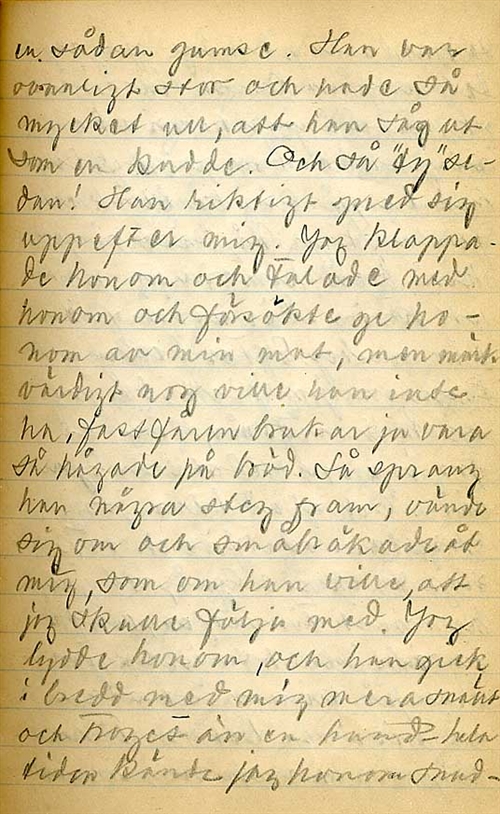 en sådan gumse. Han var
ovanligt stor och hade så
mycket ull, att han såg ut
som en kudde. Och så "ty" se-
dan! Han riktigt gned sig
uppefter mig. Jag klappa-
de honom och talade med
honom och försökte ge ho-
nom av min mat, men märk-
värdigt nog ville han inte
ha, fast fåren brukar ju vara
så hågade på bröd. Så sprang
han några steg fram, vände
sig om och småbräkade åt
mig, som om han ville, att
jag skulle följa med. Jag
lydde honom, och han gick
i bredd med mig mera snällt
och troget än en hund - hela
tiden kände jag honom snud-